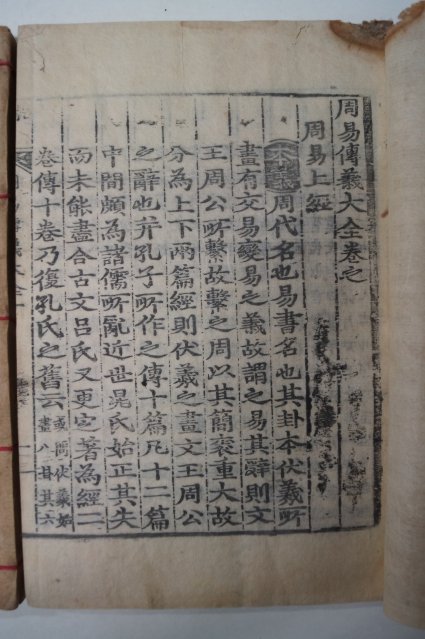 周易傳義大全卷之
周易上經
本義周代名也易書名也其卦本伏羲所
畫有交易變易之義故謂之易其辭則文
王周公所繫故繫之周以其簡袠重大故
分為上下兩篇經則伏羲之畫文王周公
之辭也幷孔子所作之傳十篇凡十二篇
中間頗為諸儒所亂近世晁氏始正其失
而未能盡合古文呂氏又更定著為經二
卷傳十卷乃復孔氏之舊云 或問伏羲始
畫八卦其六